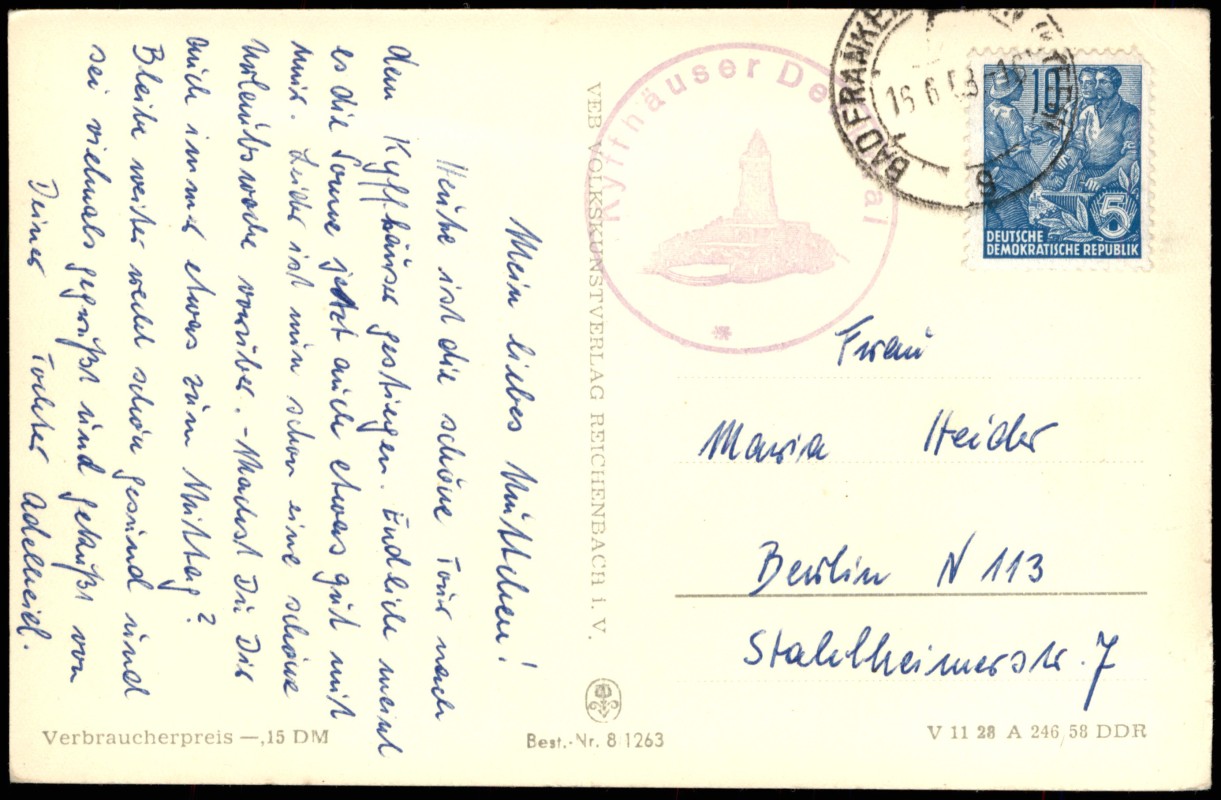 Mein liebes Muttchen!
Heute ist die schöne Tour nach
dem Kyffhäuser gestiegen. Endlich meint
es die Sonne jetzt auch etwas gut mit
mir. Leider ist nun schon eine schöne
Urlaubswoche vorüber. - Machst Du Dir
auch immer etwas zum Mittag?
Bleibe weiter recht schön gesund und
sei vielmals gegrüßt und geküßt von
Deiner Tochter Adelheid.
Verbraucherpreis —,15 DM
VEB VOLKSKUNSTVERLAG REICHENBACH i. V.
Best.-Nr. 8 1263
Kyffhäuser
BAD FRANKEN
16 6 58
10
5
DEUTSCHE
DEMOKRATISCHE REPUBLIK
g
Frau
Maria Heider
Berlin N 113
Stahlheimerstr. 7
V 11 28 A 246/58 DDR